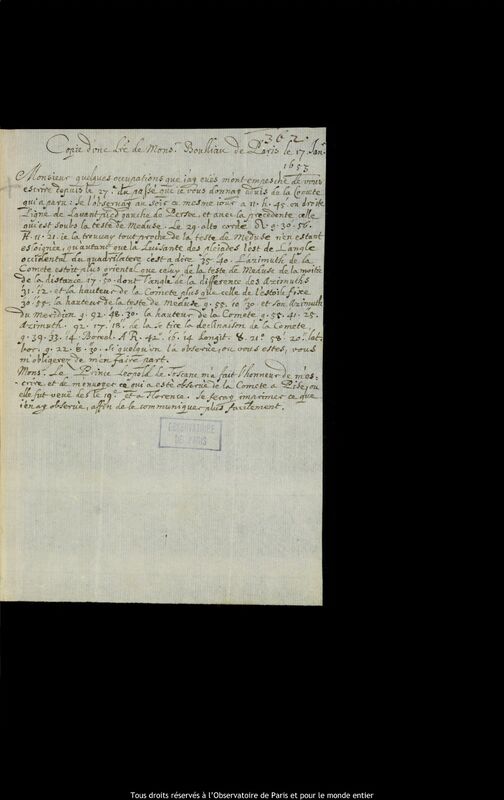 362.
Copie d'une Lre de Monsr Boulliau de Paris le 17. Jan.
1653
Monsieur quelques occupations que j'ay eues m'ont empesché de vous
escrire depuis le 27. du passé que je vous donnay advis de la Comete
qui a paru. Je l'observay au soir ce mesme jour a 11. h. 45. en droite
Ligne de l'avant pied gauche de Persee, et avec la precedente celle
qui est soubs la teste de Meduse. Le 29. alto corde g. 30. 56.
H. 11. 21. je la trouvay tout proche de la teste de Meduse n'en estant
esloignee, qu'autant que la Luisante des pleiades l'est de L'angle
occidental du quadrilatere c'est a dire 35. 40. L'azimuth de la
Comete estoit plus oriental que celuy de la teste de Meduse de la moitié
de la distance 17. 50. dont l'angle de la difference des azimuths
31. 12. et la hauteur de la Comete plus que celle de l'estoile fixe
30. 55. la hauteur de la teste de Meduse g. 55. 10. 30 et son azimuth
du Meridien g. 92. 48. 30. la hauteur de la Comete g. 55. 41. 25.
azimuth. 92. 17. 18. de la se tire la declinaison de la Comete
g. 39. 33. 14. Boreal. A R. 42. 16. 14 longit. 8. 21. 58. 20. lat.
bor. g. 22. 8. 30. Si quelqu'un l'a observée, ou vous estes, vous
m'obligerez de m'en faire part.
Monsr. Le Prince Leopold de Toscane m'a fait l'honneur de m'es-
crire et de m'envoyer ce qui a esté observé de la Comete a Pise, ou
elle fut veue des le 19e. et a Florence. Je feray imprimer ce que
j'en ay observé, affin de la communiquer plus facilement.
OBSERVATOIRE
DE PARIS
Tous droits réservés à l'Observatoire de Paris et pour le monde entier